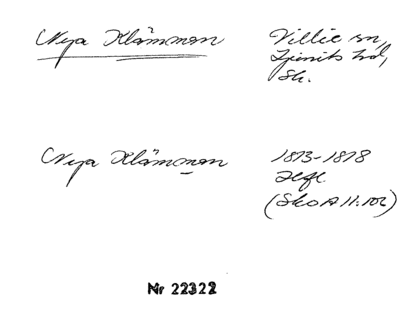 Nya Klämman
Villie sn,
Ljunits hd,
Sk.
Nya Klämman
1873-1878
Hfl.
(Sko A II:102)
Nr 22322